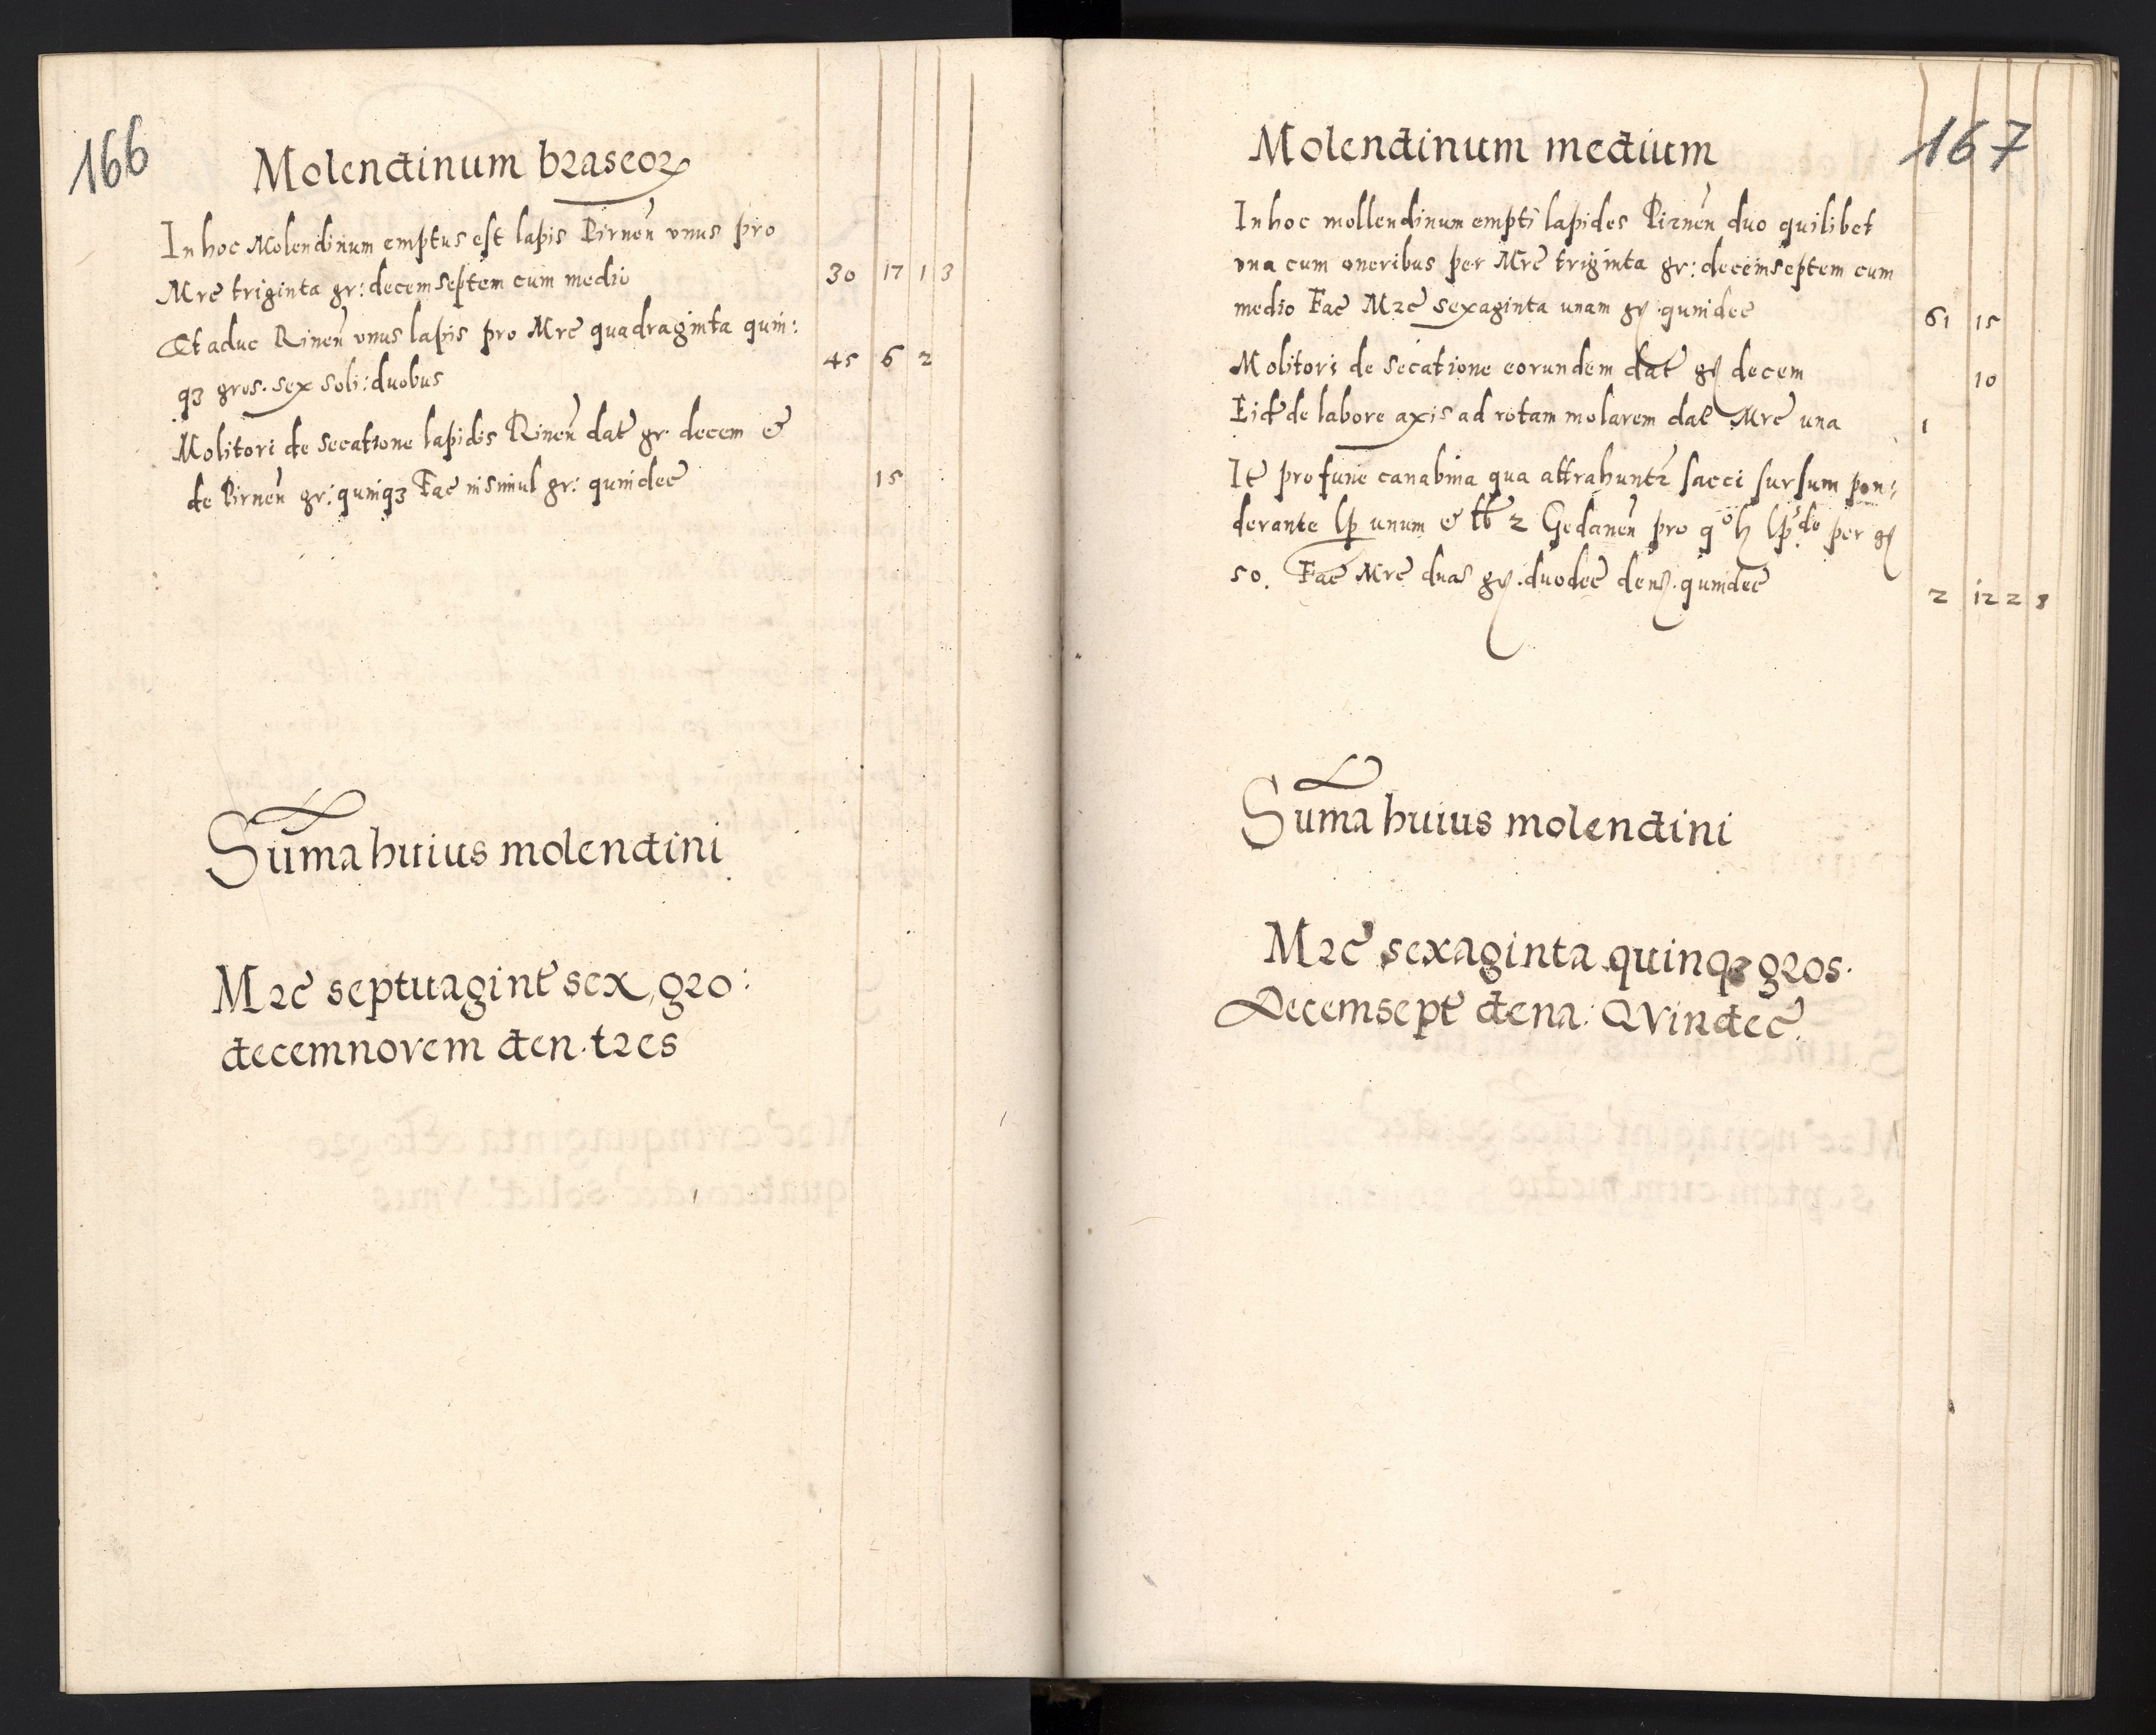 166
Molendinum braseoꝝ
In hoc Molendinum emptus est lapis Pirneñ vnus pro
Mrc̃ triginta gr: decemseptem cum medio 30 17 1 3
Et aduc Rineñ vnus lapis pro Mrc̃ quadraginta quin:
qꝫ gros. sex soli: duobus 45 6 2
Molitori de secatione lapidis Rineñ dat̃ gr. decem &
de Pirneñ gr: quinqꝫ Fac̃ insimul gr: quindec̃ 15
Sum̃a huius molendini
Mrc̃ septuagint̃ sex gro:
decemnovem den. tres
167
Molendinum medium
In hoc mollendinum empti lapides Pirneñ duo quilibet
vna cum oneribus per Mrc̃ triginta gr: decemseptem cum
medio Fac̃ Mrc̃ sexaginta unam gꝝ quindec̃ 61 15
Molitori de secatione eorundem dat̃ gꝝ decem 10
Eid̃ de labore axis ad rotam molarem dat̃ Mrc̃ una 1
It̃ pro fune canabina qua attrahuntꝛ sacci sursum pon:
derante lp̃ unum & lb 2 Gedaneñ pro per gꝝ
50. Fac̃ Mrc̃ duas gꝝ. duodec̃ denꝝ. quindec̃ 2 12 2 8
Sum̃a huius molendini
Mrc̃ sexaginta quinqꝫ gros.
Decemsept̃ dena: QVindec̃.